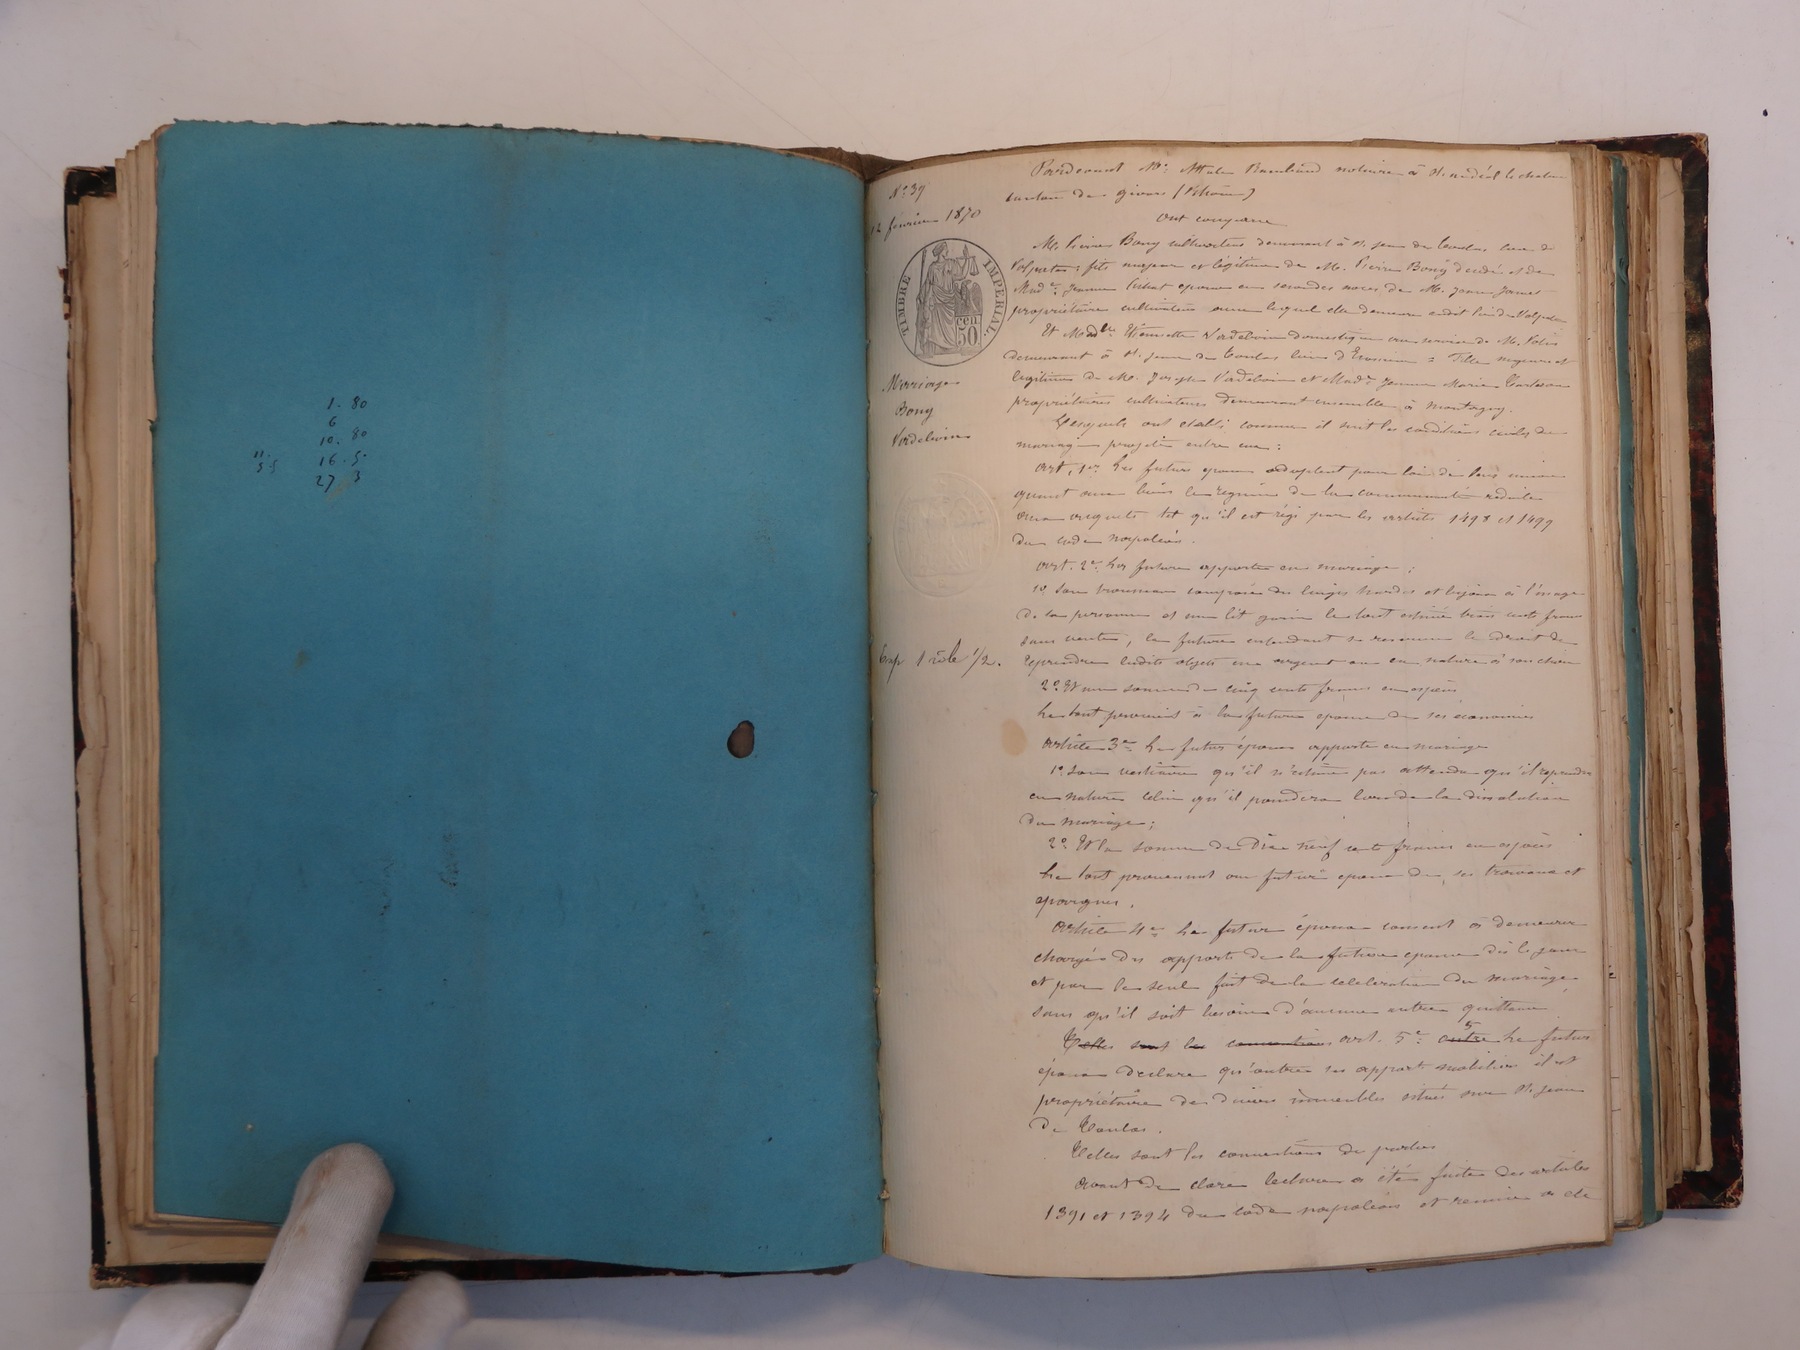 1. 80
6
10. 80
11. 16. 5.
5.5 27. 3
N° 39
12 février 1870
TIMBRE IMPÉRIAL.
50 cen
Mariage
Bony
Verdelin
Exp 1 rôle 1/2.
Pardevant Me notaire à St andéol le chateau
canton de givors (Rhône)
ont comparu
M. Pierre Bony cultivateur demeurant à St jean de Toulas lieu de
fils majeur et légitime de M. Pierre Bony décédé et de
Made Jeanne épouse en secondes noces de M. Jean
propriétaire cultivateur avec lequel elle demeure audit lieu de
Et Madlle Etiennette domestique au service de M.
demeurant à St jean de Toulas lieu d' fille majeure et
légitime de M. Joseph et Made Jeanne Marie
propriétaires cultivateurs demeurant ensemble à Montagny.
Lesquels ont établi comme il suit les conditions civiles du
mariage projeté entre eux :
art. 1er Les futurs époux adoptent pour loi de leur union
quant aux biens le régime de la communauté réduite
aux acquêts tel qu'il est régi par les articles 1498 et 1499
du code napoléon.
art. 2e La future apporte en mariage :
1° Son trousseau composé de linges hardes et bijoux à l'usage
de sa personne et un lit garni le tout estimé trois cents francs
sans vente, la future entendant se réserver le droit de
reprendre lesdits objets en argent ou en nature à son choix
2° Et une somme de cinq cents francs en espèces
Le tout provenant à la future épouse de ses économies
article 3e Le futur époux apporte en mariage
1° Son vestiaire qu'il n'estime pas attendu qu'il reprendra
en nature celui qu'il possédera lors de la dissolution
du mariage ;
2° Et la somme de Dix neuf cents francs en espèces
Le tout provenant au futur époux de ses travaux et
épargnes.
article 4e Le futur époux consent à demeurer
chargé des apports de la future épouse dès le jour
et par le seul fait de la célébration du mariage
sans qu'il soit besoin d'aucune autre quittance
Telles sont les conventions art. 5e Le futur
époux déclare qu'outre ses apport mobilier il est
propriétaire de divers immeubles situés sur St jean
de Toulas.
Telles sont les conventions de parties
avant de clore lecture a été faite des articles
1391 et 1394 du code napoléon et remise a été